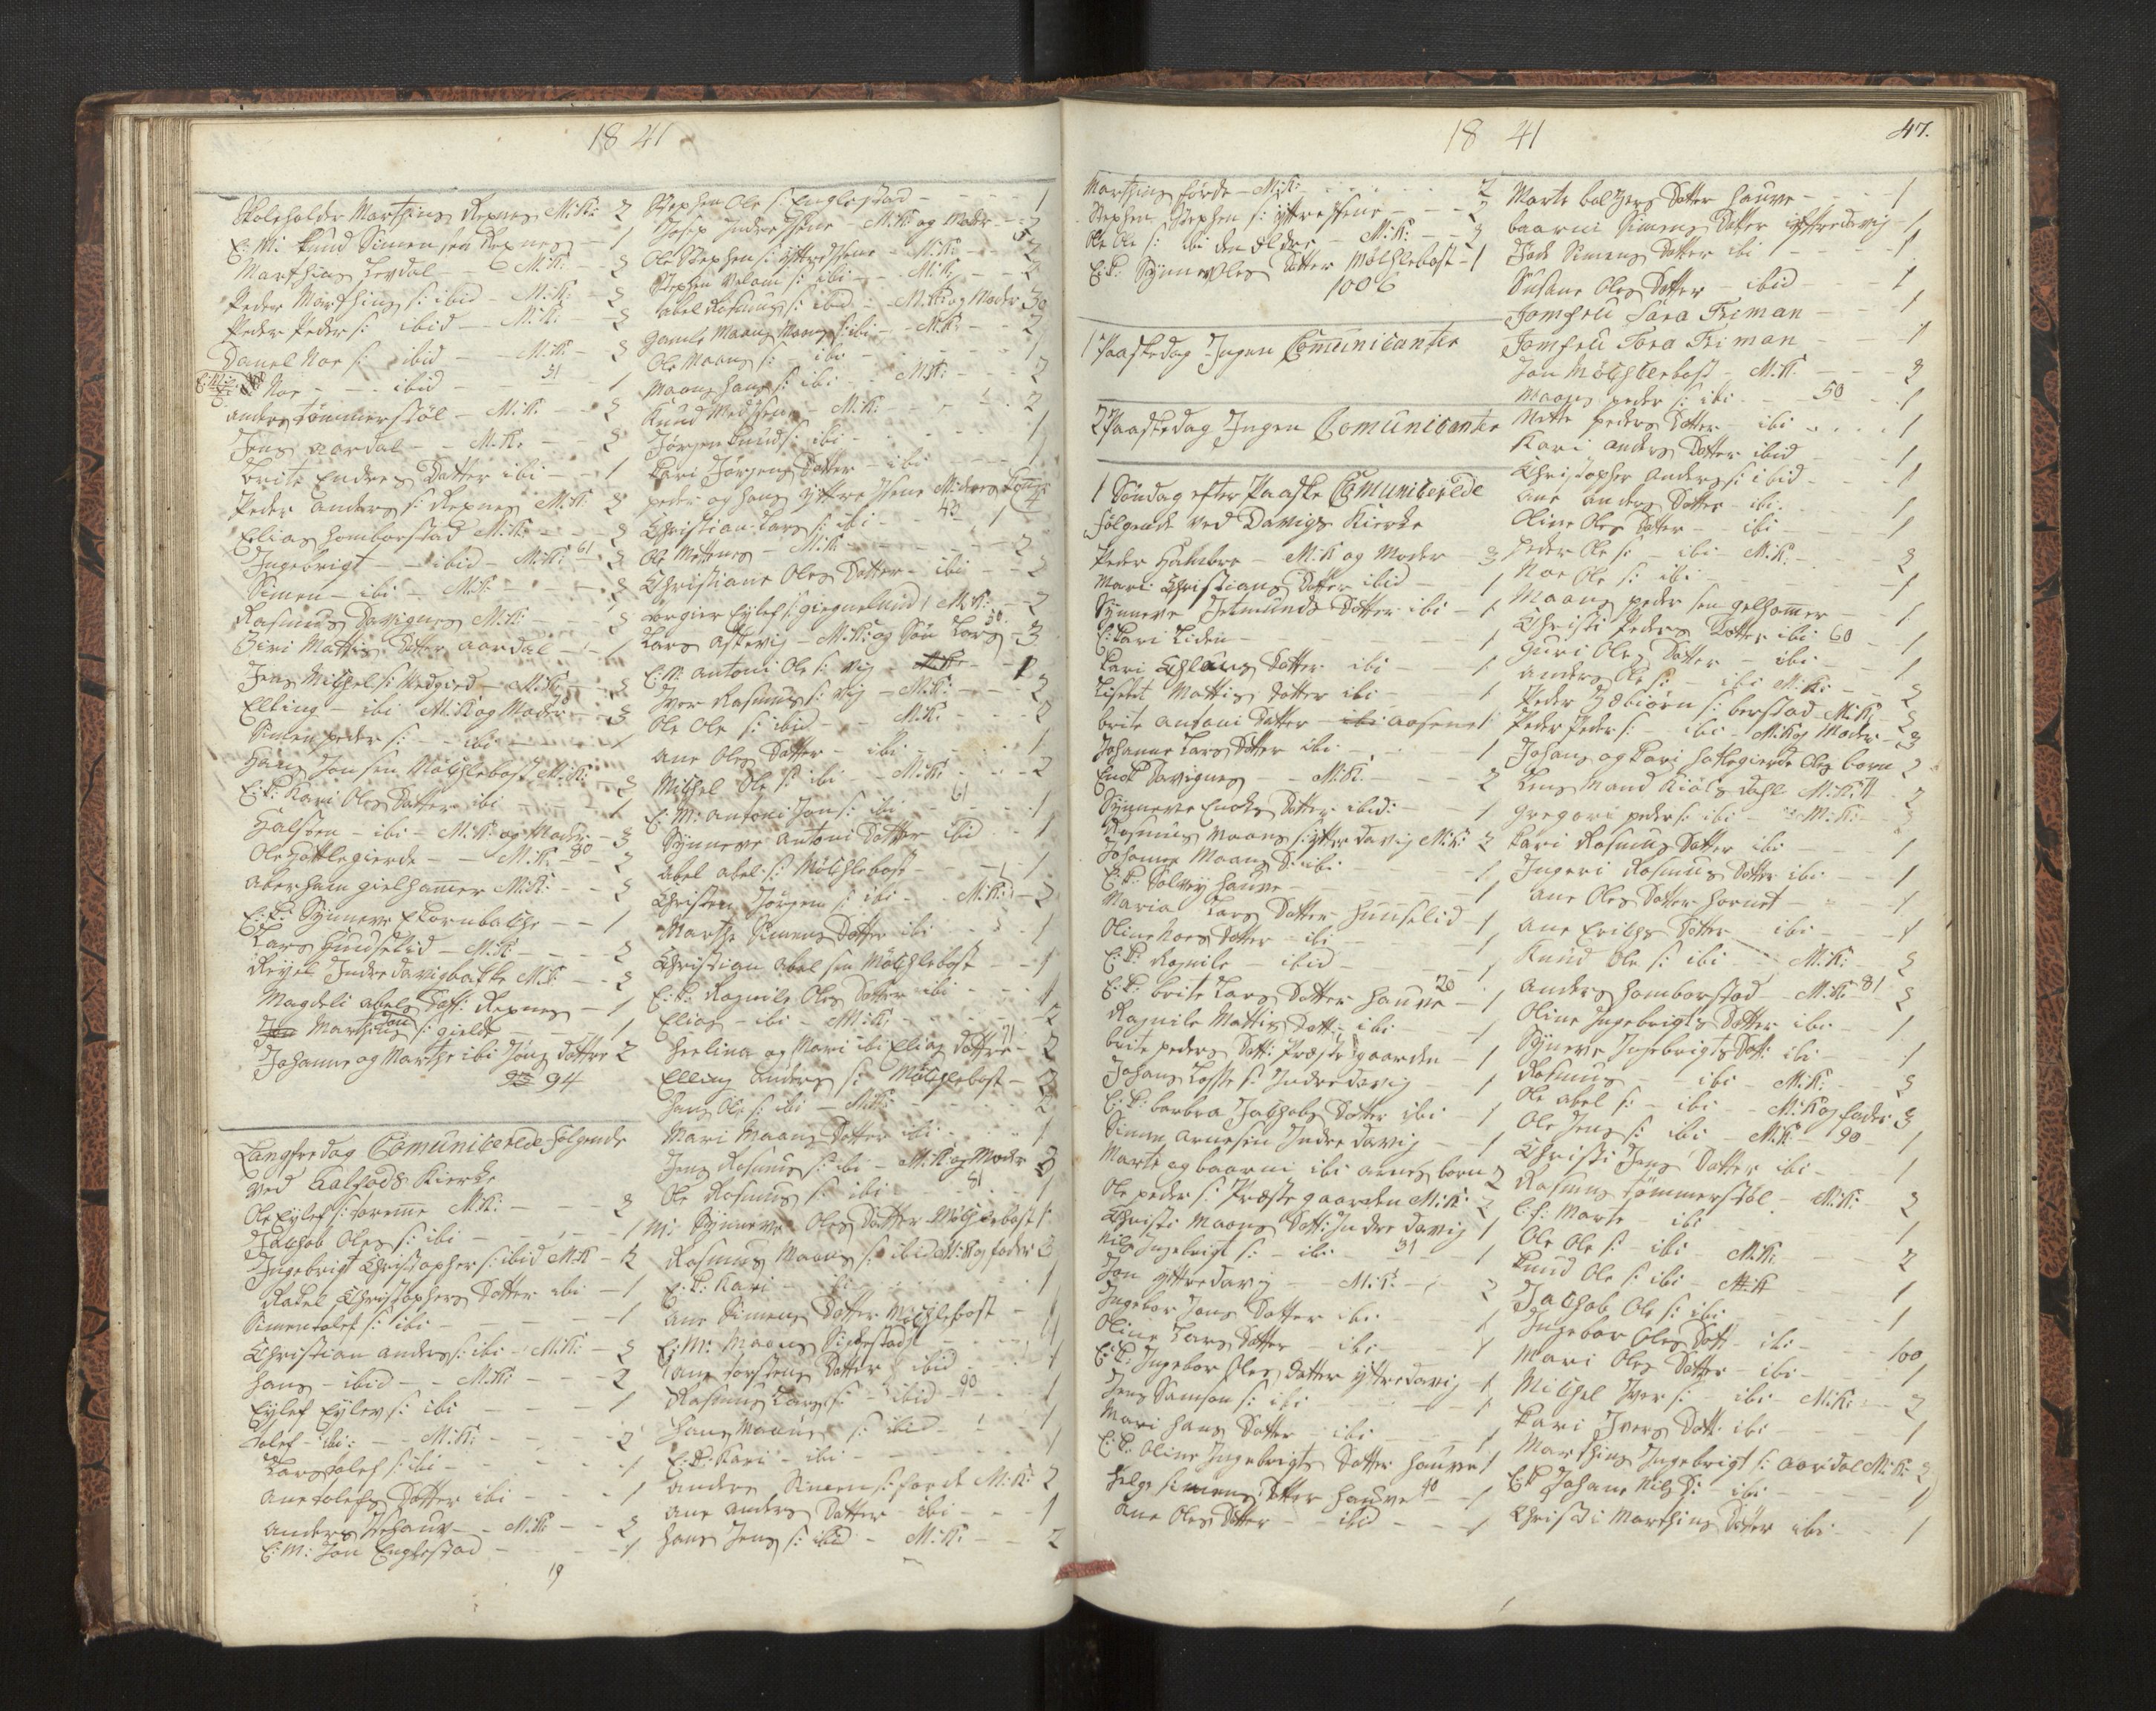 18 41
Skoleholder Marthinus Repnes M:K: 2
E: M: Knud Simensen Repnes 1
Marthias Levdal M:K: 2
Peder Marthins s: ibid M:K: 2
Peder Peder s: ibid M:K: 2
Danel Noe s: ibid M:K: 2
Noe ibid 31 1
Anders Tømmerstøl M:K: 2
Jens Aardal M:K: 2
Brite Endres Datter ibi 1
Peder Anders s: Repnes M:K: 2
Elias Homborstad M:K: 2
Ingebrigt ibid M:K: 61 2
Simen ibi M:K: 2
Rasmus Davignes M:K: 2
Siri Mattis Datter Aardal 1
Jens Michel s: Hedgierd M:K: 2
Elling ibi M:K: og Moder 3
Simen Peder s: ibi 1
Hans Jonsen Møchlebost M:K: 2
E: K: Kari Oles Datter ibi 1
Halsten ibi M:K: og Moder 3
Ole Hattlegierde M:K: 80 2
Aberham Gielhammer M:K: 2
E: K: Synneve Skornbakke 1
Lars Hundselid M:K: 2
Indre Davigbakke M:K: 2
Magdeli Abels Datt: Repnes 1
Marthinus s: gielde 1
Johanne og Marthe ibi Jons Dottre 2
94
Langfredag Comunicerede følgende
ved Kalfods Kierke
Ole Eylef s: M:K: 2
Jachob Oles s: ibi 1
Ingebrigt Christopher s: ibid M:K 2
Rakel Christophers Datter ibi 1
Simen Tolef s: ibi 1
Christian Anders s: ibi M:K: 2
Hans ibid M:K: 2
Eylef Eylev s: ibi 1
Tolef ibi: M:K: 2
Lars Tolef s: ibi 1
Ane Tolefs Datter ibi 1
Anders M:K: 2
E: M: Jon Englestad 1
19
Stephen Ole s: Englestad 1
Josep Indrehsene M:K: og Moder 3
Ole Stephen s: Yttrehsene M:K: 2
Stephen s: ibi M:K: 2
Abel Rasmus s: ibid M:K: og Moder 3
Gamle Maans Maans s: ibi M:K: 2
Ole Maans s: ibi 1
Maans Hans s: ibi M:K: 2
Knud M:K: 2
Jørgen Knud s: ibi 1
Kari Jørgens Datter ibi 1
Peder og Hans Yttrehsene M: deres Koner 4
Christian Lars s: ibi 43 1
Ole M:K: 2
Christiane Oles Datter ibi 2
Lars Askevig M:K: og Søn Lars 3
E: M: Antoni Ole s: Vig 1
Iver Rasmus s: Vig M:K: 2
Ole Ole s: ibid M:K: 2
Ane Oles Datter ibi 1
Michel Ole s: ibi M:K: 2
E: M: Antoni Jon s: ibi 61 1
Synneve Antoni Datter ibid 1
Abel Abel s: Møchlebost 1
Christen Jørgen s: ibi M:K: 2
Marthe Simens Datter ibi 1
Christian Abelsen Møchlebost 1
E: K: Ragnile Oles Datter ibi 1
Elias ibi M:K: 2
Heelina og Mari ibi Elias Dottre 71 2
Elling Anders s: Møchlebost 2
Hans Ole s: ibi M:K: 2
Mari Maans Datter ibi 1
Jens Rasmus s: ibi M:K: og Moder 3
Ole Rasmus s: ibi 81 1
M: Synneve Oles Datter Møchlebost 1
Rasmus Maans s: ibid M:K: og fader 3
E: K: Kari ibi 1
Ane Simens Datter Møchlebost 1
E: M: Maans 1
Ane Torstens Datter ibid 1
Rasmus Lars s: ibid 90 1
Hans Maans s: ibid 1
E: K: Kari ibi 1
Anders Simen s: Førde M:K: 2
Ane Anders Datter ibi 1
Hans Jens s: ibid M:K: 2
18 41
47.
Marthins Førde M:K: 2
Stephen Stephen s: Yttrehsene 2
Ole Ole s: ibi den ældre M:K: 2
E: K: Synnev Oles Datter Møchlebost 1
1006
1 Paaskedag Ingen Comunicanter
2 Paaskedag Ingen Comunicanter
1 Søndag efter Paaske Comunicerede
følgende ved Davigs Kierke
Peder Hamre M:K og Moder 3
Mari Christians Datter ibid 1
Synneve Datter ibi 1
E: Kari Liden 1
Kari Datter ibi 1
Lisebet Mattis Datter ibi 1
Brite Antoni Datter Aasene 1
Johanne Lars Datter ibi 1
Enok Davignes M:K: 2
Synneve Enoks Datter ibid: 1
Rasmus Maans s: Ytter Davig M:K: 2
Johanne Maans D: ibi 1
E: K: Solvy Hauve 1
Maria Lars Datter Hunselid 1
Oline Noes Datter ibi 1
E: K: Ragnile ibid 1
E: K: Brite Lars Datter Hauve 20 1
Ragnile Mattis Datt: ibi 1
Brite Peders Datt: Præstegaarden 1
Johans s: Indredavig 1
E: K: Barbra Jachobs Datter ibi 1
Simen Arnesen Indre Davig 1
Marte og Baarni ibi Arnes born 2
Ole Peder s: Præstegaarden M:K: 2
Christi Maans Datt: Indre Davig 1
Nils Ingebrigt s: ibi 31 1
Jon Yttredavig M:K: 2
Ingebor Jons Datter ibi 1
Oline Lars Datter ibi 1
E: K: Ingebor Oles Datter Yttredavig 1
Jens Samson s: ibi 1
Mari Hans Datter ibi 1
E: K: Oline Ingebrigts Datter Hauve 1
Helge Simens Datter Hauve 40 1
Ane Oles Datter ibid 1
Marte Baltzers Datter Hauve 1
Baarni Simens Datter Yttredavig 1
Simens Datter ibi 1
Susane Oles Datter ibid 1
Jomfru Sara Friman 1
Jomfru Tora Friman 1
Jon Møchlebost M:K. 2
Maans Peder s: ibi 50 1
Mette Peders Datter ibi 1
Kari Anders Datter ibid 1
Christopher Anders s: ibid 1
Ane Anders Datter ibi 1
Oline Oles Datter ibi 1
Peder Ole s: ibi M:K. 2
Noe Ole s: ibi 1
Maans Pedersen Gelhammer 1
Christi Peders Datter ibi 60 1
Guri Oles Datter ibi 1
Anders Ole s: ibi M:K: 2
Peder s: Berstad M:K: 2
Peder Peder s: ibi M:K og Moder 3
Johans og Kari Hattlegierde Oles born 2
Lensmand Kiølsdahl M:K: 71 2
Gregori Peder s: ibi M:K: 2
Kari Rasmus Datter ibi 1
Ingeri Rasmus Datter ibi 1
Ane Oles Datter Hornet 1
Ane Erichs Datter ibi 1
Knud Ole s: ibi M:K: 2
Anders Homborstad M:K: 81 2
Oline Ingebrigts Datter ibi 1
Synneve Ingebrigts Datt: ibi 1
Rasmus ibi M:K: 2
Ole Abel s: ibi M:K og fader 3
Ole Jens s: ibi M:K: 90 1
Christi Jens Datter ibi 1
Rasmus Tømmerstøl M:K: 2
E: K: Marte ibi 1
Ole Ole s: ibi M:K: 2
Knud Ole s: ibi M:K 1
Jachob Ole s: ibi 1
Ingebor Oles Datt ibi 100
Mari Oles Datter ibi 1
Michel Iver s: ibi M:K: 2
Kari Ivers Datt: ibi 1
Marthins Ingebrigt s: Aardal M:K: 2
E: K Johane Nils D: ibi 1
Christi Marthins Datter ibi 1